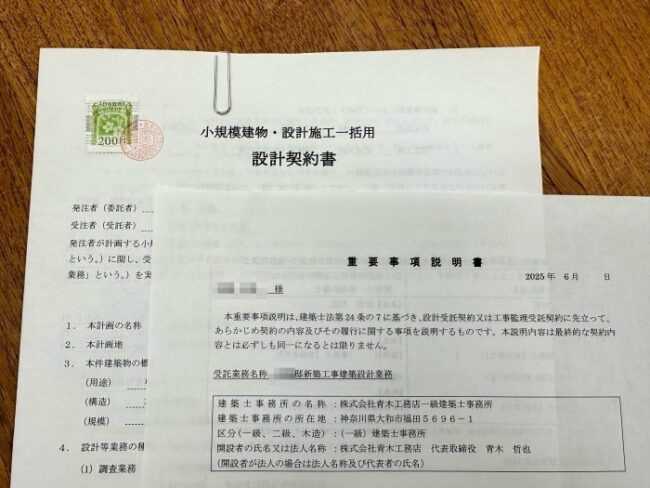 200円
小規模建物・設計施工一括用
設計契約書
発注者（委託者）
受注者（受託者）
発注者が計画する小規
という。）に関し、受
業務」という。）を実
1． 本計画の名称
2． 本計画地
3． 本件建築物の概
（用途）
（構造）
（規模）
4． 設計等業務の種
(1) 調査業務
重要事項説明書
2025年 6月 日
様
本重要事項説明は、建築士法第24条の7に基づき、設計受託契約又は工事監理受託契約に先立って、
あらかじめ契約の内容及びその履行に関する事項を説明するものです。本説明内容は最終的な契約内
容とは必ずしも同一になるとは限りません。
受託業務名称 邸新築工事建築設計業務
建築士事務所の名称 ：株式会社青木工務店一級建築士事務所
建築士事務所の所在地 ：神奈川県大和市福田5696－1
区分(一級、二級、木造) ：(一級) 建築士事務所
開設者の氏名又は法人名称 ：株式会社青木工務店 代表取締役 青木 哲也
(開設者が法人の場合は法人名称及び代表者の氏名)